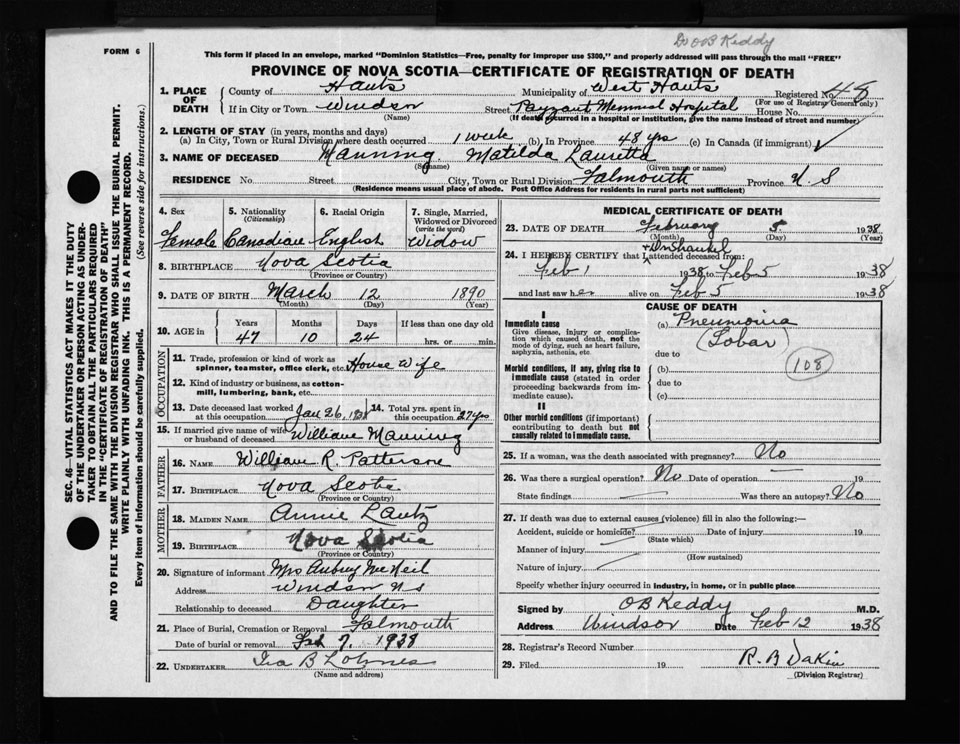 Dr OB Keddy
FORM 6
This form if placed in an envelope, marked "Dominion Statistics—Free, penalty for improper use $300," and properly addressed will pass through the mail "FREE"
PROVINCE OF NOVA SCOTIA—CERTIFICATE OF REGISTRATION OF DEATH
1. PLACE OF DEATH
County of Hants Municipality of West Hants Registered No. 48
(For use of Registrar General only)
If in City or Town Windsor Street Payzant Memorial Hospital House No.
(Name) (If death occurred in a hospital or institution, give the name instead of street and number)
2. LENGTH OF STAY (in years, months and days)
(a) In City, Town or Rural Division where death occurred 1 week (b) In Province 48 yrs (c) In Canada (if immigrant) ✓
3. NAME OF DECEASED Manning Matilda Lauretta
(Surname) (Given name or names)
RESIDENCE No. Street City, Town or Rural Division Falmouth Province N. S
(Residence means usual place of abode. Post Office Address for residents in rural parts not sufficient)
4. Sex Female
5. Nationality (Citizenship) Canadian
6. Racial Origin English
7. Single, Married, Widowed or Divorced (write the word) Widow
8. BIRTHPLACE Nova Scotia
(Province or Country)
9. DATE OF BIRTH March 12 1890
(Month) (Day) (Year)
10. AGE in
Years Months Days If less than one day old
47 10 24 hrs. or min.
OCCUPATION
11. Trade, profession or kind of work as spinner, teamster, office clerk, etc. House Wife
12. Kind of industry or business, as cotton-mill, lumbering, bank, etc.
13. Date deceased last worked at this occupation Jan 26, 1938
14. Total yrs. spent in this occupation 27 yrs
15. If married give name of wife or husband of deceased William Manning
FATHER
16. NAME William R. Patterson
17. BIRTHPLACE Nova Scotia
(Province or Country)
MOTHER
18. MAIDEN NAME Annie Lantz
19. BIRTHPLACE Nova Scotia
(Province or Country)
20. Signature of informant Mrs Aubrey McNeil
Address Windsor N S
Relationship to deceased Daughter
21. Place of Burial, Cremation or Removal Falmouth
Date of burial or removal Feb 7, 1938
22. UNDERTAKER Ira B Lohnes
(Name and address)
MEDICAL CERTIFICATE OF DEATH
23. DATE OF DEATH February 5 1938
(Month) (Day) (Year)
+ Dr Shankel
24. I HEREBY CERTIFY that I attended deceased from:
Feb 1 1938 to Feb 5 1938
and last saw her alive on Feb 5 1938
CAUSE OF DEATH
I
Immediate cause
Give disease, injury or complication which caused death, not the mode of dying, such as heart failure, asphyxia, asthenia, etc.
(a) Pneumonia
(Lobar)
due to
108
Morbid conditions, if any, giving rise to immediate cause (stated in order proceeding backwards from immediate cause).
(b)
due to
(c)
II
Other morbid conditions (if important) contributing to death but not causally related to immediate cause.
25. If a woman, was the death associated with pregnancy? No
26. Was there a surgical operation? No Date of operation — 19
State findings Was there an autopsy? No
27. If death was due to external causes (violence) fill in also the following:—
Accident, suicide or homicide? Date of injury 19
(State which)
Manner of injury
(How sustained)
Nature of injury
Specify whether injury occurred in industry, in home, or in public place
Signed by OB Keddy M.D.
Address Windsor Date Feb 12 1938
28. Registrar's Record Number
29. Filed 19 R. B Dakin
(Division Registrar)
SEC. 46—VITAL STATISTICS ACT MAKES IT THE DUTY
OF THE UNDERTAKER OR PERSON ACTING AS UNDER-
TAKER TO OBTAIN ALL THE PARTICULARS REQUIRED
IN THE "CERTIFICATE OF REGISTRATION OF DEATH"
AND TO FILE THE SAME WITH THE DIVISION REGISTRAR WHO SHALL ISSUE THE BURIAL PERMIT.
WRITE PLAINLY WITH UNFADING INK. THIS IS A PERMANENT RECORD.
Every item of information should be carefully supplied. (See reverse side for instructions.)